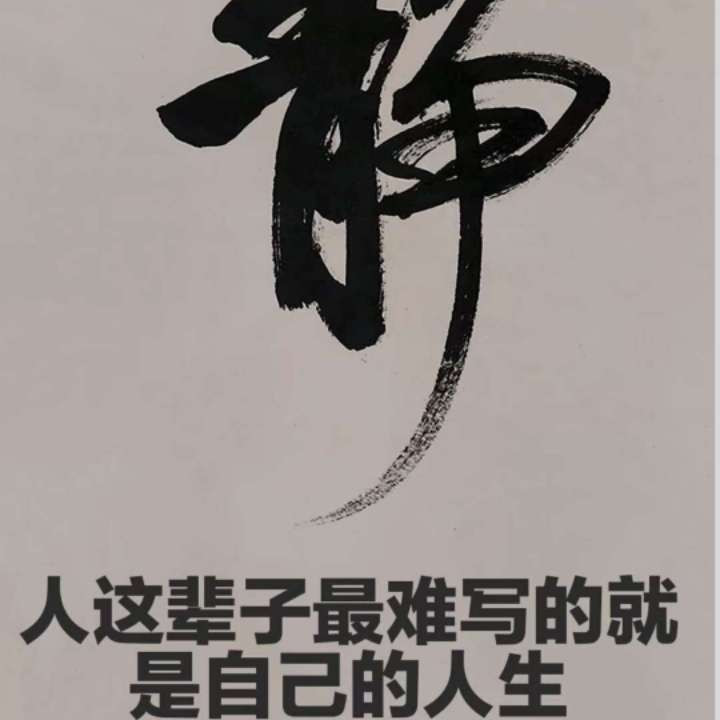 静
人这辈子最难写的就
是自己的人生